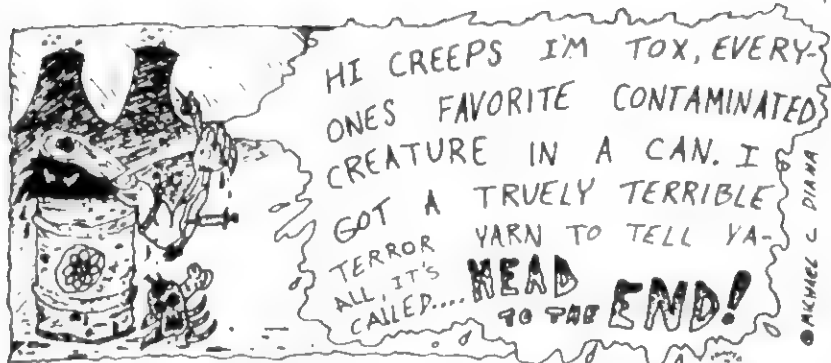 HI CREEPS I'M TOX, EVERY-
ONES FAVORITE CONTAMINATED
CREATURE IN A CAN. I
GOT A TRUELY TERRIBLE
TERROR YARN TO TELL YA-
ALL, IT'S
CALLED....
HEAD
TO THE END!
© MICHAEL C DIANA